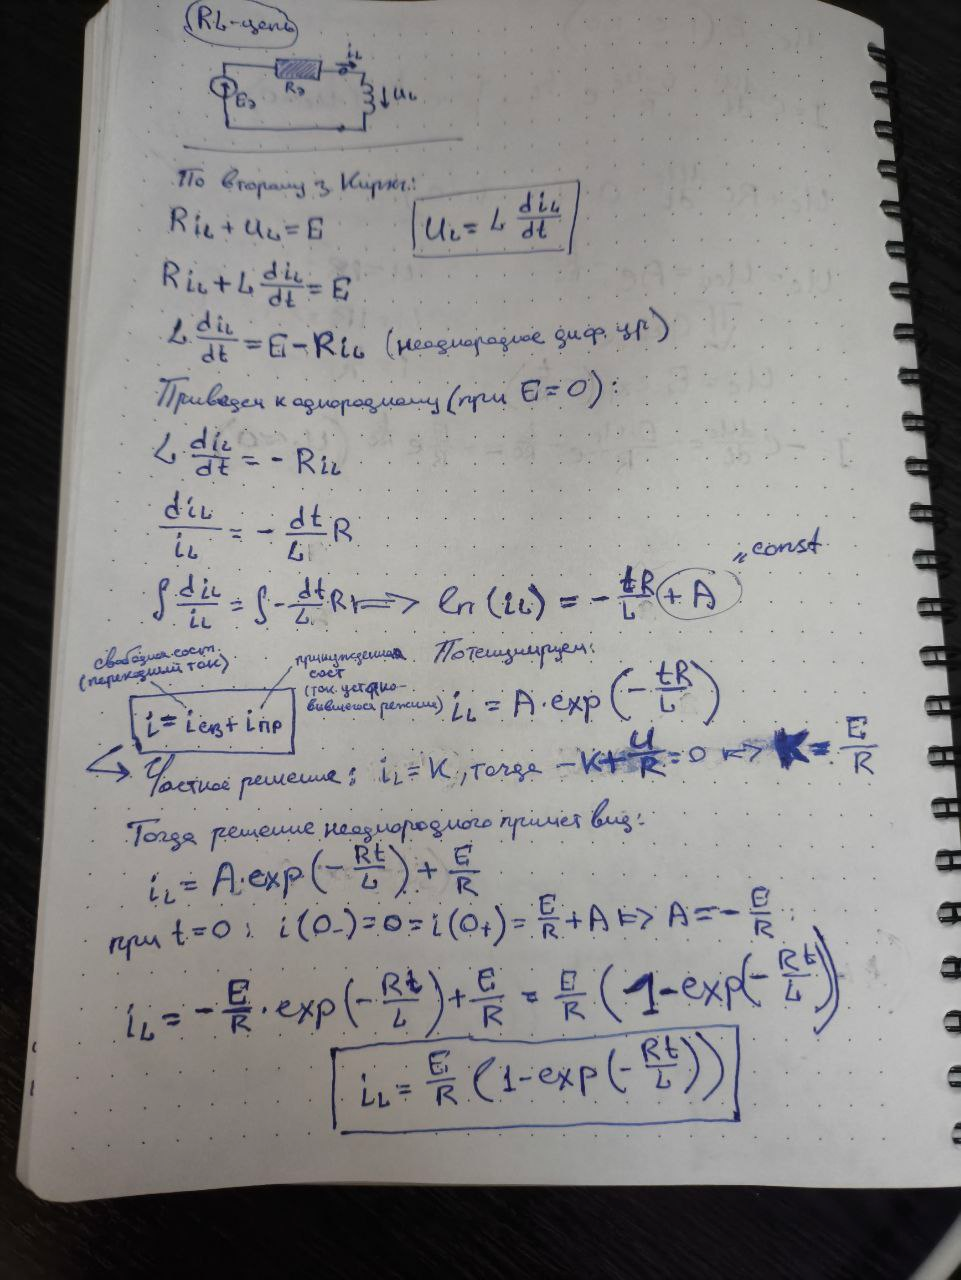 RL-цепь
iL
Rэ
Eэ
uL
По второму з. Кирхг.:
RiL + uL = E
uL = L diL/dt
RiL + L diL/dt = E
L diL/dt = E - RiL (неоднородное диф. ур)
Приведем к однородному (при E = 0):
L diL/dt = - RiL
diL/iL = - dt/L R
∫ diL/iL = ∫ - dt/L R => ln (iL) = - tR/L + A
"const
свободная сост.
(переходный ток)
принужденная
сост
(ток устано-
вившегося режима)
Потенцируем:
iL = A · exp (- tR/L)
i = iсв + iпр
Частное решение: iL = K, тогда -K + U/R = 0 => K = E/R
Тогда решение неоднородного примет вид:
iL = A · exp (- Rt/L) + E/R
при t = 0: i(0-) = 0 = i(0+) = E/R + A => A = - E/R
iL = - E/R · exp (- Rt/L) + E/R = E/R (1 - exp(- Rt/L))
iL = E/R (1 - exp (- Rt/L))